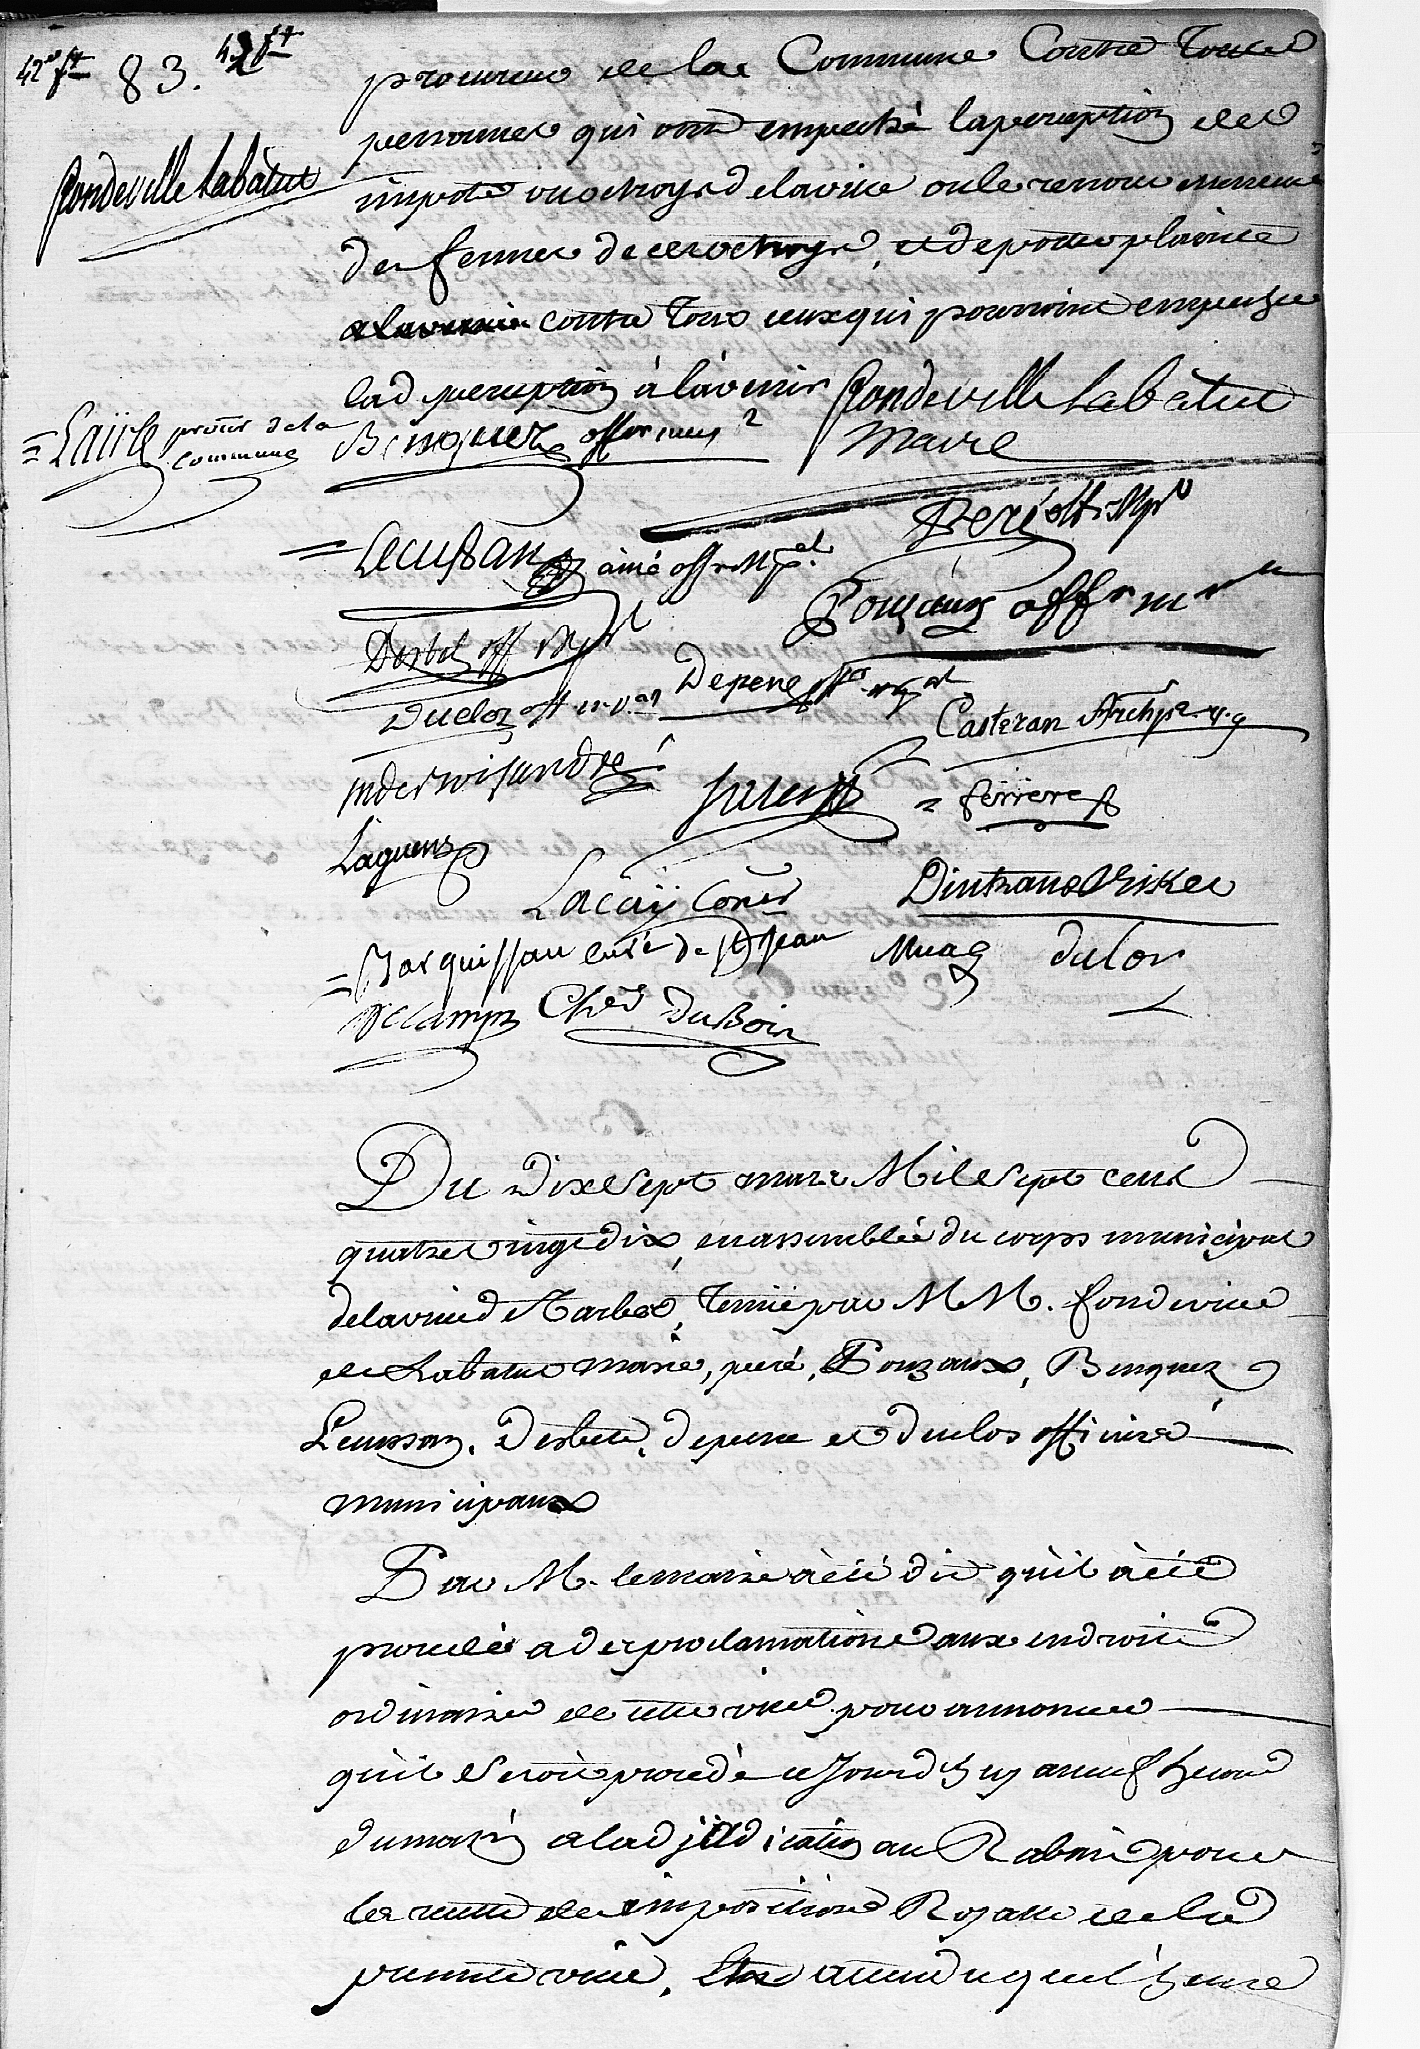 42e ft 83. 42 ft
fondeville Labatut
procureur de la Commune Contre Toutes
personnes qui ont empeché la perception des
impots ou octroys de la ville ou le renouvellement
des fermes de ces octroys, et de porter plainte
contre Tous ceux qui pourroint empecher
lad perception à l'avenir fondeville Labatut
maire
procur de la
commune
Benquez offr mup
Peré off. Mpl
Lecussan ainé offr Mpal.
Pouzaux offr mr
Desbets off Mpl
Depene offr mpal
Duclos off
Casteran Archipr.
ferrere
Laguens
Lacay Coner
Dintrans
curé de St Jean
dulor
Declamps Cher duBoin
Du Dixsept mars Mil Sept cent
quatrevingt dix, en assemblée du corps municipal
de la ville de Tarbes, Tenüe par MM. fondeville
de Labatut maire, peré, Pouzaux, Benquez
Lecussan, Desbets, depene et duclos officiers
municipaux
Par M. le maire a été dit qu'il à été
procédé a des proclamations aux endroits
ordinaires de cette ville pour annoncer
qu'il Seroit procédé ce Jourd'huy a neuf heures
du matin a l'adjudication au Rabais pour
la recette des impositions Royalles de la d
presente ville, attendu que l'heure